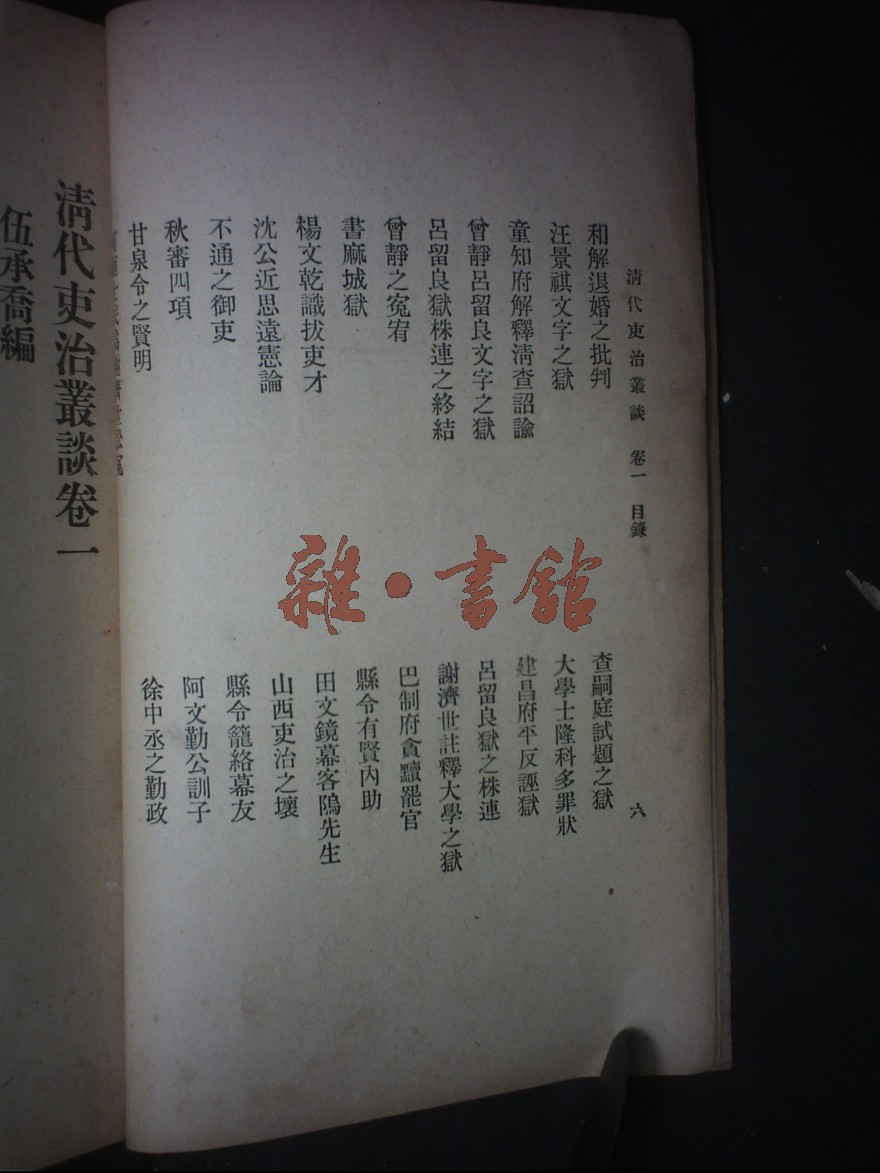 清代吏治叢談　卷一　目錄　六
和解退婚之批判
查嗣庭試題之獄
汪景祺文字之獄
大學士隆科多罪狀
童知府解釋淸查詔諭
建昌府平反誣獄
曾靜呂留良文字之獄
呂留良獄之株連
呂留良獄株連之終結
謝濟世註釋大學之獄
曾靜之寃宥
巴制府貪黷罷官
書麻城獄
縣令有賢內助
楊文乾識拔吏才
田文鏡幕客隝先生
沈公近思遠憲論
山西吏治之壞
不通之御吏
縣令籠絡幕友
秋審四項
阿文勤公訓子
甘泉令之賢明
徐中丞之勤政
淸代吏治叢談卷一
伍承喬編
雜·書館